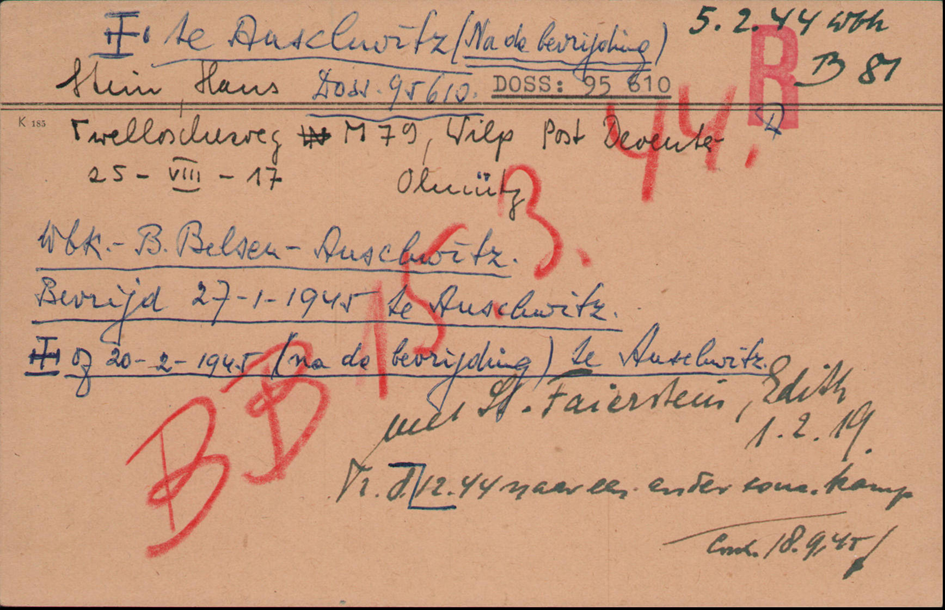 † te Auschwitz (Na de bevrijding) 5.2.44 wbk
R B 81
Stein, Hans Doss. 95610. DOSS: 95 610
K 185
Twelloscheweg M 79, Wilp Post Deventer
25 - VIII - 17 Olmütz
15.3.44.
Wbk.- B. Belsen - Auschwitz.
Bevrijd 27-1-1945 te Auschwitz.
† op 20-2-1945 (na de bevrijding) te Auschwitz.
BB
met St. Faierstein, Edith
1.2.19.
Tr. 12.44 naar een ander conc. kamp
18.9.45